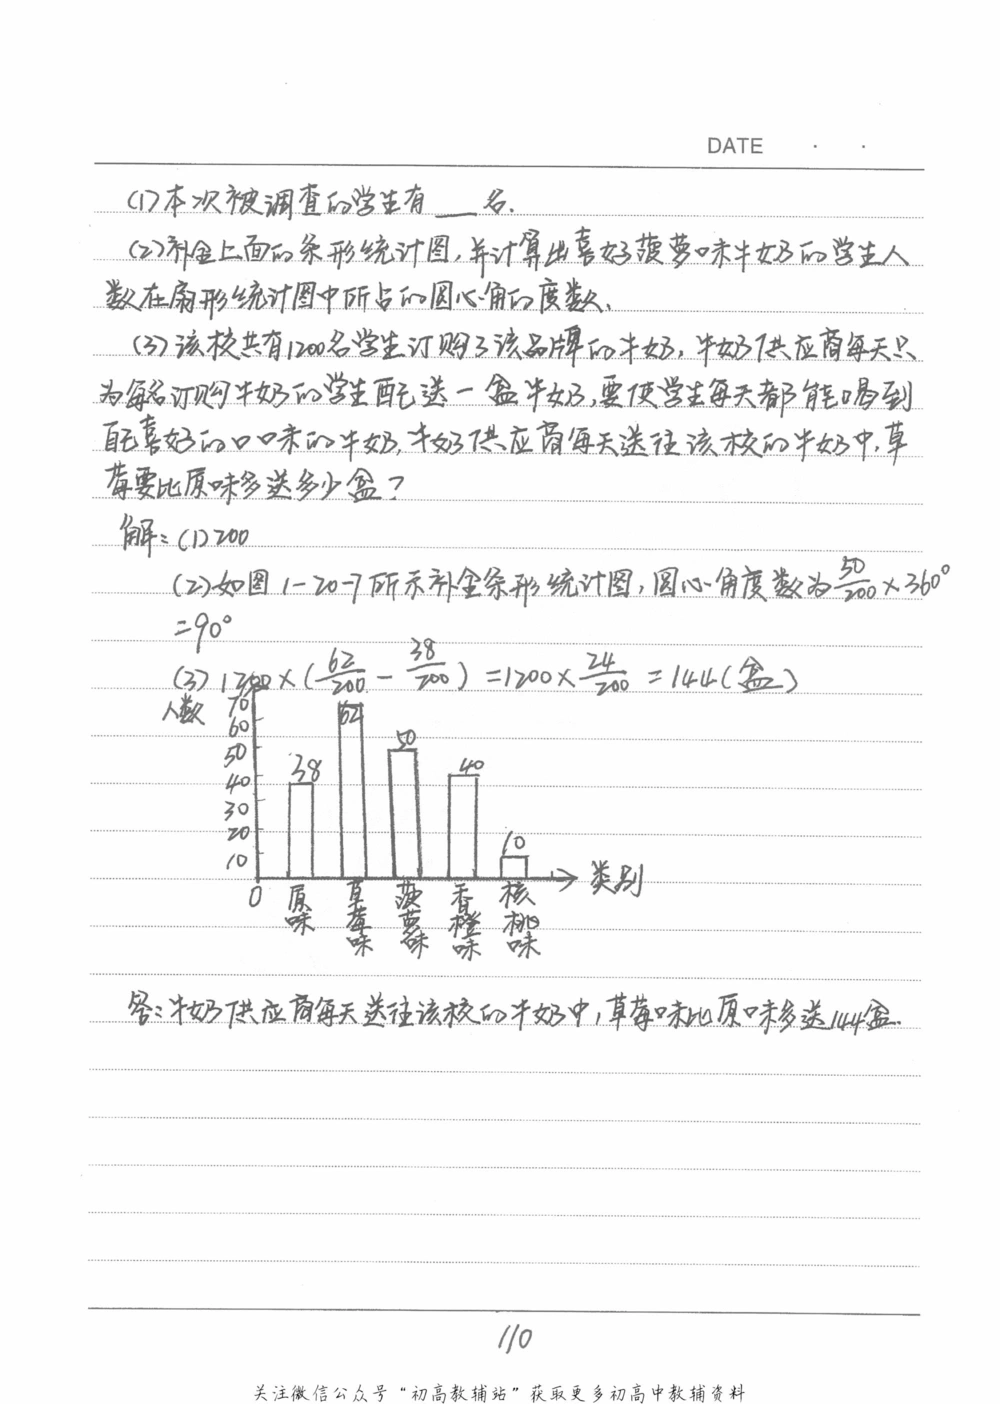 DATE · ·
(1)本次被调查的学生有___名.
(2)补全上面的条形统计图,并计算出喜好菠萝味牛奶的学生人
数在扇形统计图中所占的圆心角的度数.
(3)该校共有1200名学生订购了该品牌的牛奶,牛奶供应商每天只
为每名订购牛奶的学生配送一盒牛奶,要使学生每天都能喝到
自己喜好的口味的牛奶,牛奶供应商每天送往该校的牛奶中,草
莓要比原味多送多少盒?
解:(1)200
(2)如图1-20-7所示补全条形统计图,圆心角度数为50/200×360°
=90°
(3)1200×(62/200-38/200)=1200×24/200=144(盒)
人数
70
60
50
40
30
20
10
0
38
62
50
40
10
原味
草莓味
菠萝味
香橙味
核桃味
类别
答:牛奶供应商每天送往该校的牛奶中,草莓味比原味多送144盒.
110
关注微信公众号“初高教辅站”获取更多初高中教辅资料